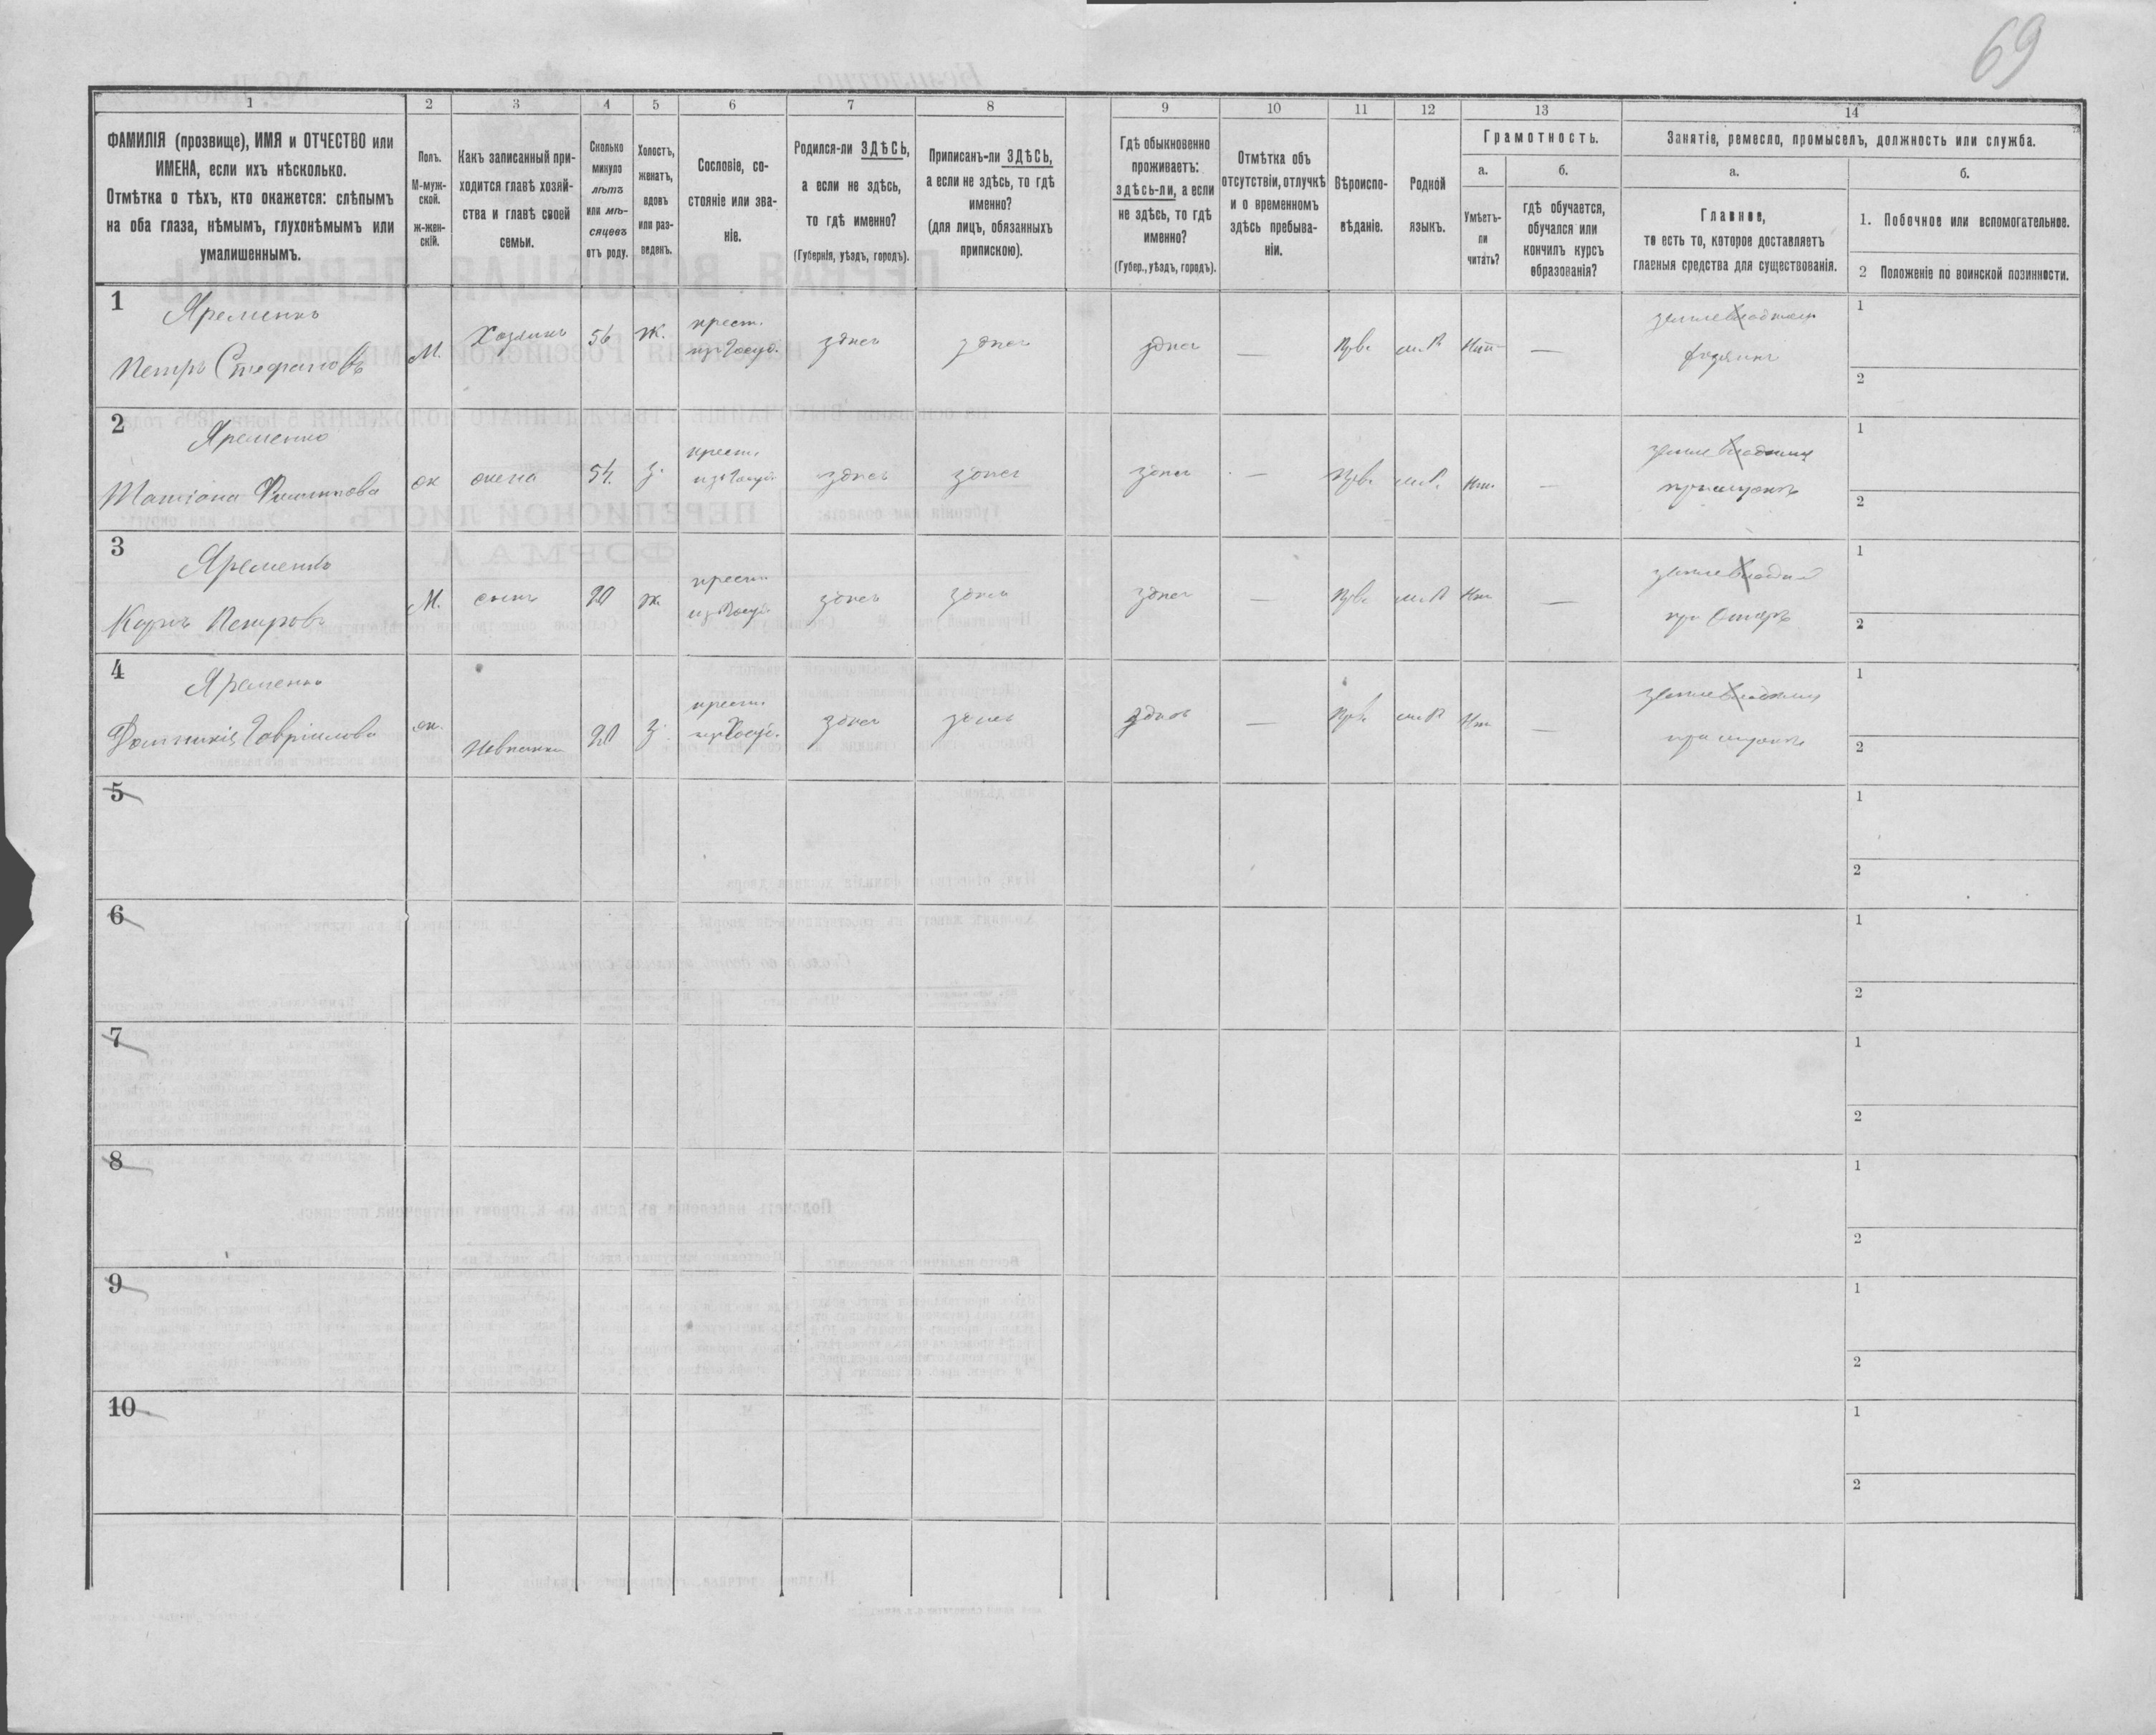 69
1 2 3 4 5 6 7 8 9 10 11 12 13 14
ФАМИЛІЯ (прозвище), ИМЯ и ОТЧЕСТВО или
ИМЕНА, если ихъ нѣсколько.
Отмѣтка о тѣхъ, кто окажется: слѣпымъ
на оба глаза, нѣмымъ, глухонѣмымъ или
умалишеннымъ.
Полъ.
М-муж-
ской.
ж-жен-
скій.
Какъ записанный при-
ходится главѣ хозяй-
ства и главѣ своей
семьи.
Сколько
минуло
лѣтъ
или мѣ-
сяцевъ
отъ роду.
Холостъ,
женатъ,
вдовъ
или раз-
веденъ.
Сословіе, со-
стояніе или зва-
ніе.
Родился-ли ЗДѢСЬ,
а если не здѣсь,
то гдѣ именно?
(Губернія, уѣздъ, городъ).
Приписанъ-ли ЗДѢСЬ,
а если не здѣсь, то гдѣ
именно?
(для лицъ, обязанныхъ
припискою).
Гдѣ обыкновенно
проживаетъ:
здѣсь-ли, а если
не здѣсь, то гдѣ
именно?
(Губер., уѣздъ, городъ).
Отмѣтка объ
отсутствіи, отлучкѣ
и о временномъ
здѣсь пребыва-
ніи.
Вѣроиспо-
вѣданіе.
Родной
языкъ.
Грамотность.
а.
Умѣетъ-
ли
читать?
б.
гдѣ обучается,
обучался или
кончилъ курсъ
образованія?
Занятія, ремесло, промыселъ, должность или служба.
а.
Главное,
то есть то, которое доставляетъ
главныя средства для существованія.
б.
1. Побочное или вспомогательное.
2 Положеніе по воинской повинности.
1
Яременко
Петръ Стефановъ
М. Хозяинъ 56 ж. крест. изъ Госуд. здѣсь здѣсь здѣсь — Прв. мл.Р Нѣт —
хозяинъ
1
2
2
Яременко
Татіана Филипова
ж жена 54. з. крест. изъ Госуд. здѣсь здѣсь здѣсь — Прв. мл.Р. Нѣт. —
при мужѣ
1
2
3
Яременко
Карпъ Петровъ
М. сынъ 20 ж. крест. изъ Госуд. здѣсь здѣсь здѣсь — Прв. мл.Р Нѣт —
при Отцѣ
1
2
4
Яременко
Домникія Гавріилова
ж. Невѣстка 20 з. крест. изъ Госуд. здѣсь здѣсь здѣсь — Прв. мл.Р Нѣт. —
при мужѣ
1
2
5
1
2
6
1
2
7
1
2
8
1
2
9
1
2
10
1
2